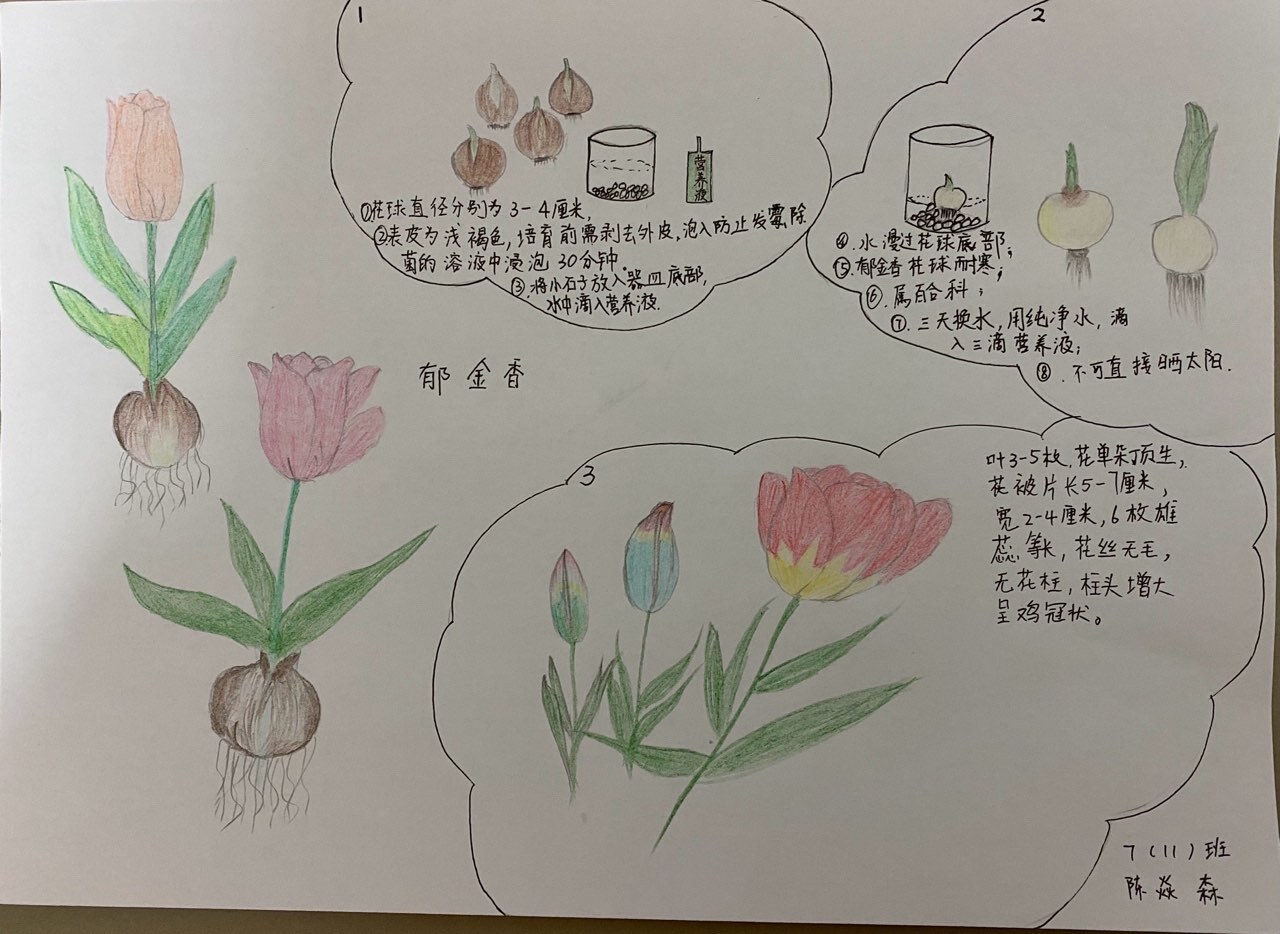 1
营养液
①花球直径分别为3-4厘米,
②表皮为浅褐色,培育前需剥去外皮,泡入防止发霉除
菌的溶液中浸泡30分钟.
③.将小石子放入器皿底部,
水中滴入营养液.
2
④.水漫过花球底部;
⑤.郁金香花球耐寒;
⑥.属百合科;
⑦.三天换水,用纯净水,滴
入三滴营养液;
⑧.不可直接晒太阳.
郁金香
3
叶3-5枚,花单朵顶生,
花被片长5-7厘米,
宽2-4厘米,6枚雄
蕊等长,花丝无毛,
无花柱,柱头增大
呈鸡冠状。
7(11)班
陈焱森